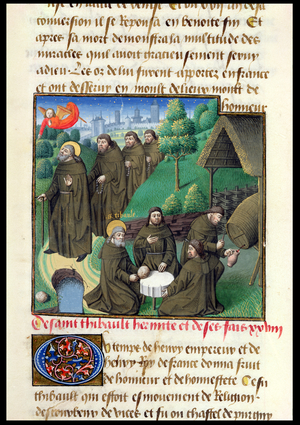 conuersion il se Reposa en benoite fin Et
apres sa mort demonstra sa multitude des
miracles quil auoit gracieusement seruy
adieu Les os de lui furent apportez en france
et ont desseruy en moult de lieux moult de
honneur
s. tibault
De saint thibault hermite et de ses fais
Ou temps de henry empereur et de
henry Roy de france donna fruit
de honneur et de honnestete
thibault qui estoit es mouement de Religion
de vices et fu ou chastel de